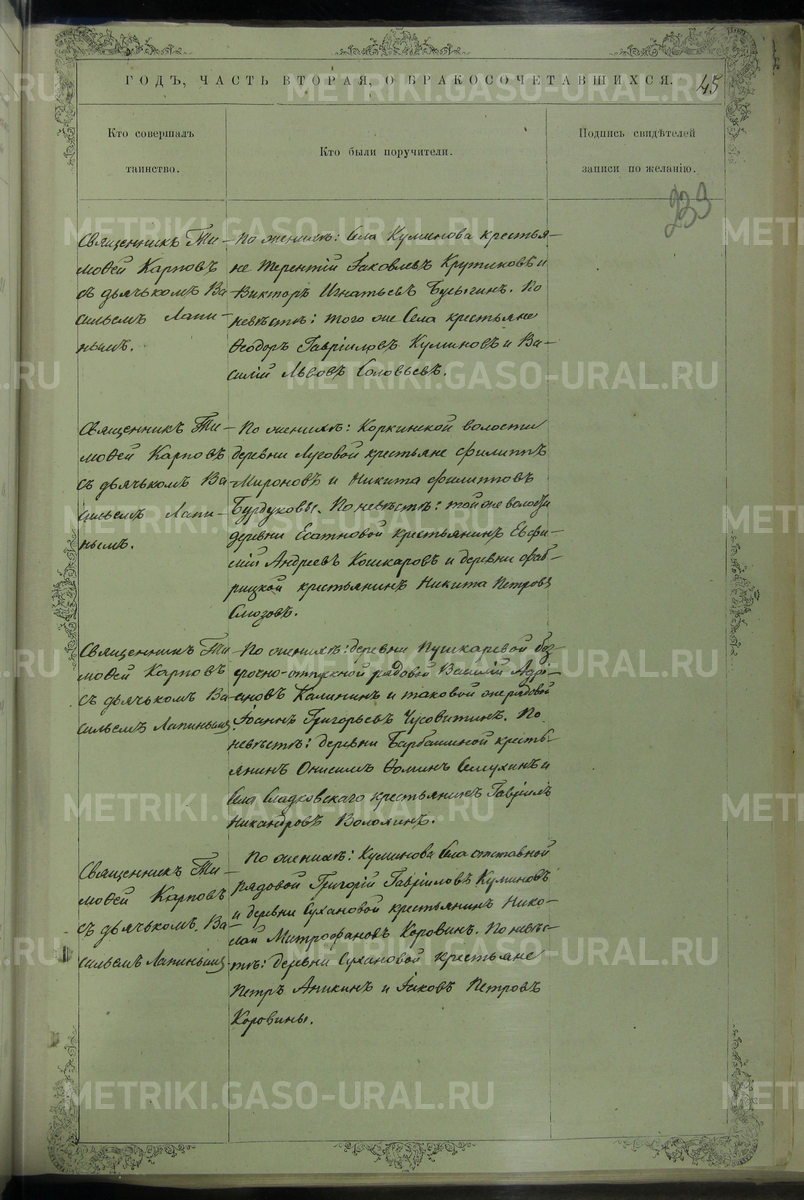 ГОДЪ, ЧАСТЬ ВТОРАЯ, О БРАКОСОЧЕТАВШИХСЯ.
45
Кто совершалъ
таинство.
Кто были поручители.
Подпись свидѣтелей
записи по желанію.
233
Священникъ Ти-
моѳей Карповъ
съ дьячькомъ Ва-
сильемъ Лапи-
нымъ.
По женихѣ: Села Куминова крестья-
не Терентій Іаковлевъ Крутиковъ и
Викторъ Игнатьевъ Бусыгинъ. По
невѣстѣ: того же Села крестьяне
Ѳеодоръ Гавріиловъ Куминовъ и Ва-
силій Львовъ Соловьевъ.
Священникъ Ти-
моѳей Карповъ
съ дьячькомъ Ва-
сильемъ Лапи-
нымъ.
По женихѣ: Коркинской волости
деревни Луговой крестьяне Филиппъ
Мироновъ и Никита Филипповъ
Бурдуковы. По невѣстѣ: той же волости
деревни крестьянинъ Евфи-
мій Андреевъ Кошкаровъ и деревни Фаб-
рицкой крестьянинъ Никита Петровъ
Слюзовъ.
Священникъ Ти-
моѳей Карповъ
съ дьячькомъ Ва-
сильемъ Лапинымъ
По женихѣ: деревни Пушкаревой без-
срочно-отпускной рядовой Василій Адрі-
ановъ Калининъ и таковой же рядовой
Іоаннъ Григорьевъ Чусовитинъ. По
невѣстѣ: деревни Барбашиной кресть-
янинъ Онисимъ Ѳоминъ Семухинъ и
Села Сладковскаго крестьянинъ Гавріилъ
Никандровъ Волохинъ.
Священникъ Ти-
моѳей Карповъ
съ дьячькомъ Ва-
сильемъ Лапинымъ
По женихѣ: Куминова Села отставной
рядовой Григорій Гавріиловъ Куминовъ
и деревни Сухановой крестьянинъ Нико-
лай Митрофановъ Коровинъ. По невѣс-
тѣ: деревни Сухановой крестьяне
Петръ Аникинъ и Іаковъ Петровъ
Коровины.
METRIKI.GASO-URAL.RU